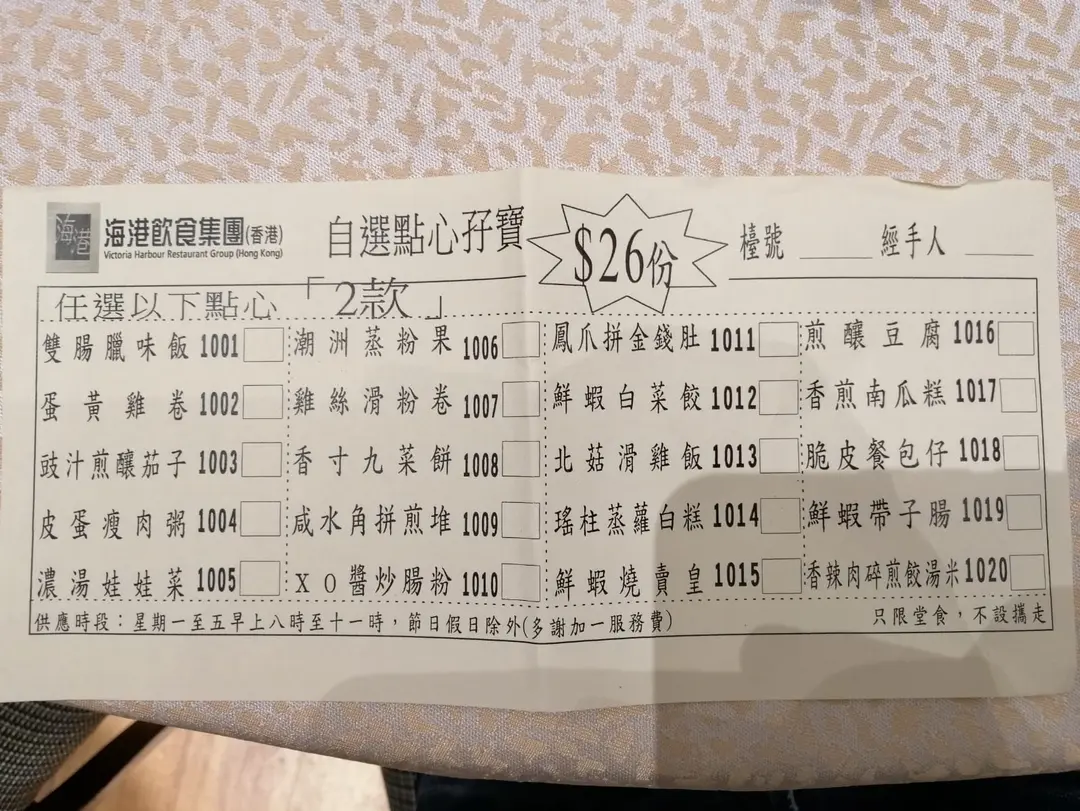 海港 海港飲食集團(香港) 自選點心孖寶 $26份 檯號 ______ 經手人 ______
Victoria Harbour Restaurant Group (Hong Kong)
任選以下點心「2款」
雙腸臘味飯 1001 潮洲蒸粉果 1006 鳳爪拼金錢肚 1011 煎釀豆腐 1016
蛋黃雞卷 1002 雞絲滑粉卷 1007 鮮蝦白菜餃 1012 香煎南瓜糕 1017
豉汁煎釀茄子 1003 香寸九菜餅 1008 北菇滑雞飯 1013 脆皮餐包仔 1018
皮蛋瘦肉粥 1004 咸水角拼煎堆 1009 瑤柱蒸蘿白糕 1014 鮮蝦帶子腸 1019
濃湯娃娃菜 1005 XO醬炒腸粉 1010 鮮蝦燒賣皇 1015 香辣肉碎煎餃湯米 1020
供應時段：星期一至五早上八時至十一時，節日假日除外(多謝加一服務費) 只限堂食，不設攜走